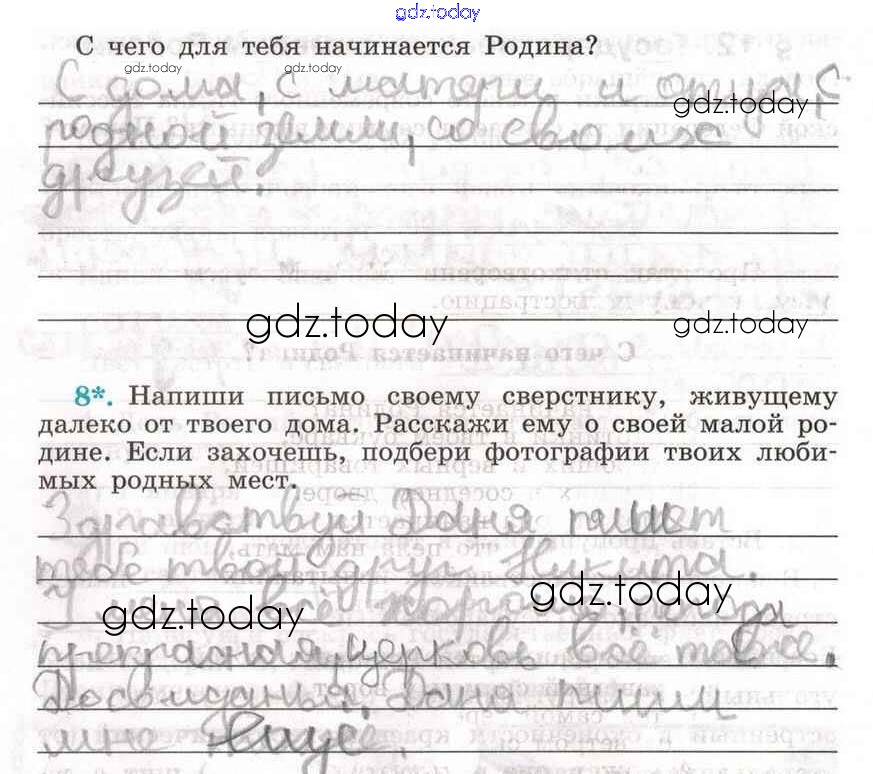 gdz.today
С чего для тебя начинается Родина?
gdz.today gdz.today
С дома, с матери и отца, с
gdz.today
родной земли, со своих
друзей.
gdz.today gdz.today
8*. Напиши письмо своему сверстнику, живущему
далеко от твоего дома. Расскажи ему о своей малой ро-
дине. Если захочешь, подбери фотографии твоих люби-
мых родных мест.
Здравствуй Даня пишет
тебе твой друг Никита.
gdz.today gdz.today
У меня всё хорошо, погода
прекрасная, церковь все таже.
Досвиданья, Даня пиши
мне ещё.